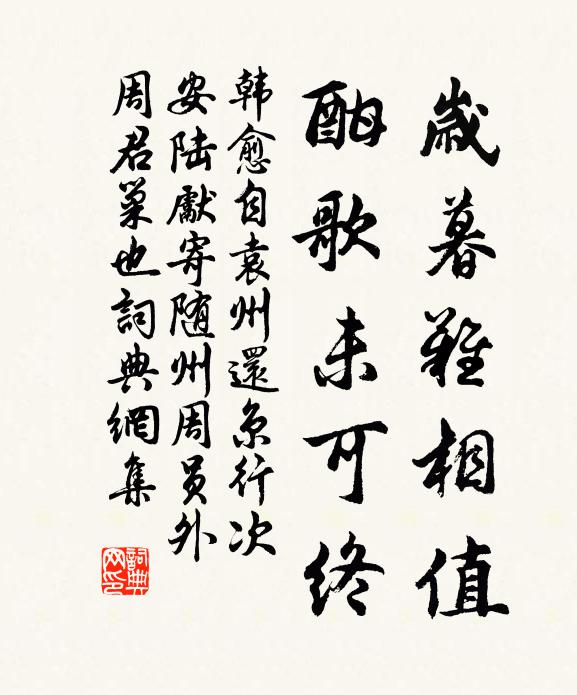 歲暮難相值
酣歌未可終
韩愈自袁州還京行次
安陆獻寄随州周員外
周君巢也詞典網集
詞典网印